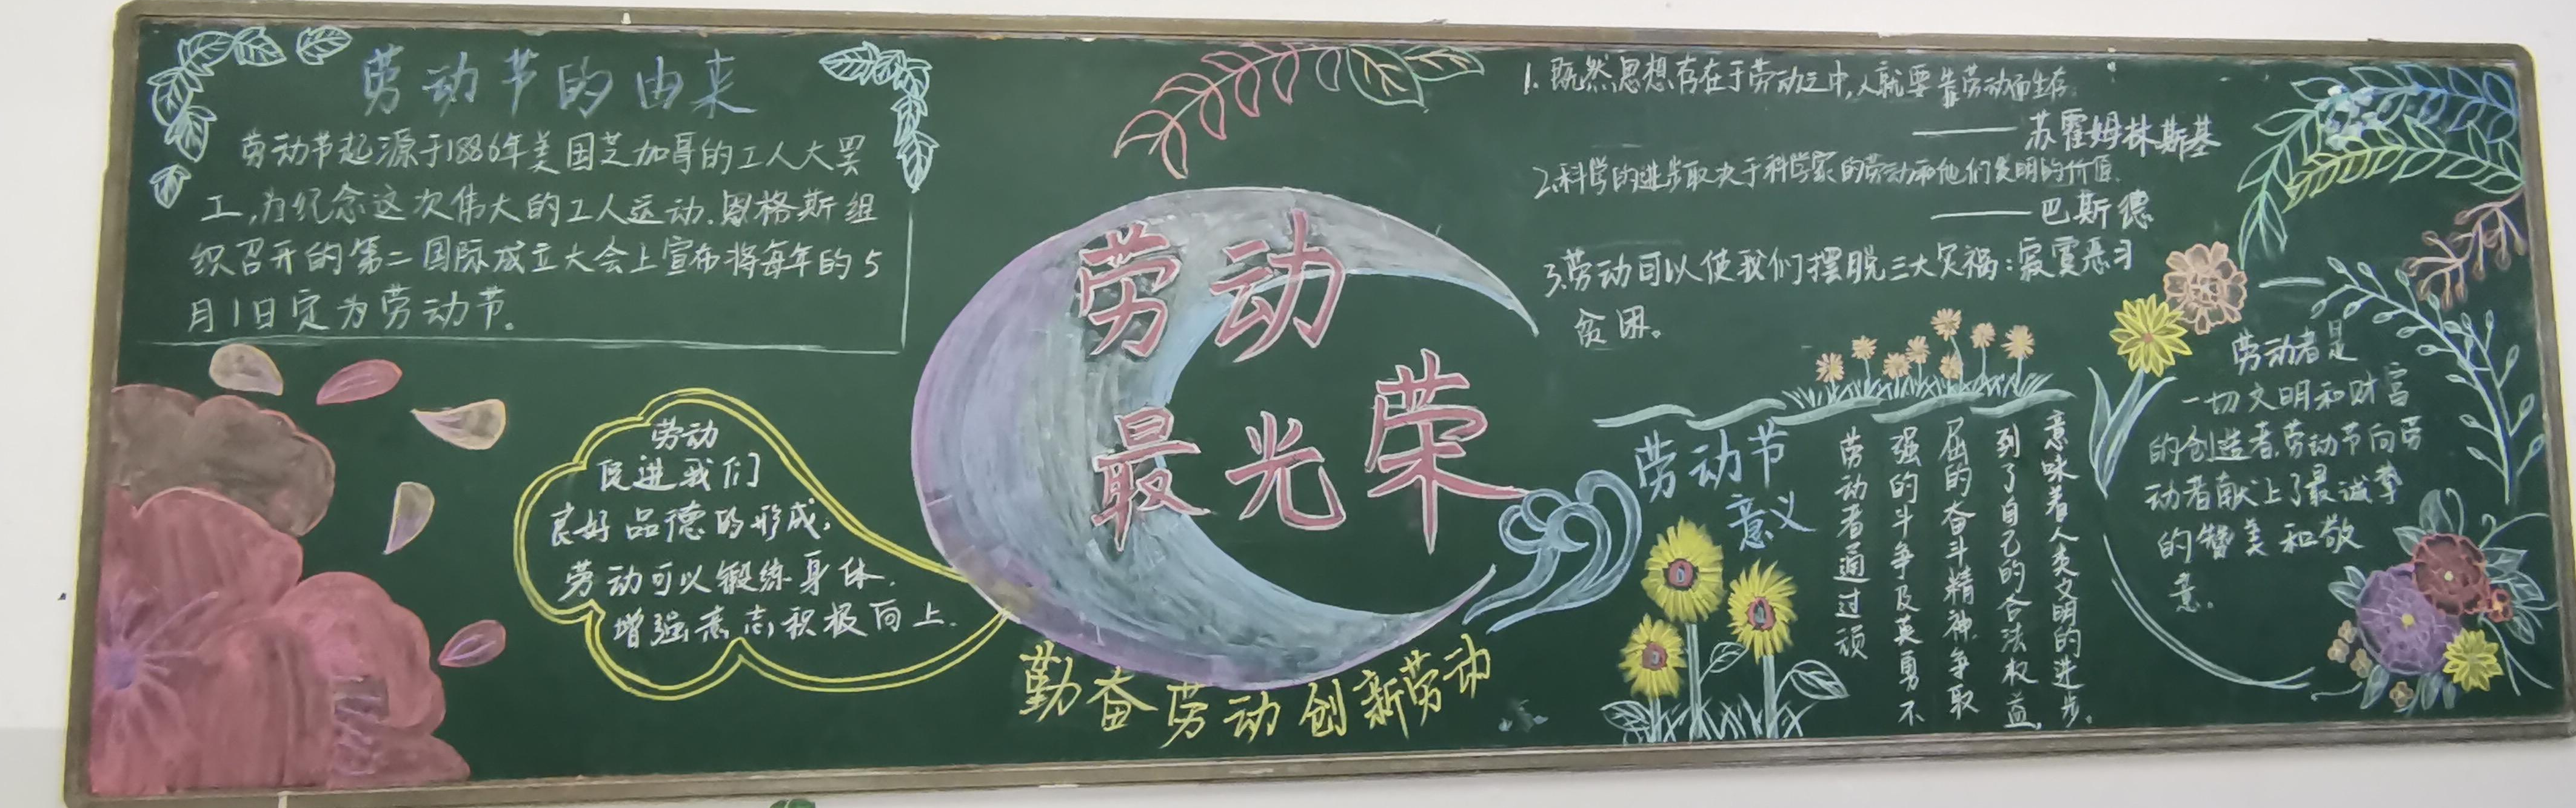 劳动节的由来
劳动节起源于1886年美国芝加哥的工人大罢
工,为纪念这次伟大的工人运动.恩格斯组
织召开的第二国际成立大会上宣布将每年的5
月1日定为劳动节。
劳动
促进我们
良好品德的形成,
劳动可以锻练身体.
增强意志,积极向上.
劳动
最光荣
勤奋劳动创新劳动
1.既然思想存在于劳动之中,人就要靠劳动而生存
——苏霍姆林斯基
2.科学的进步取决于科学家的劳动和他们发明的价值.
——巴斯德
3.劳动可以使我们摆脱三大灾祸:寂寞恶习
贫困。
劳动节
意义
劳动者通过顽
强的斗争及英勇不
屈的奋斗精神.争取
到了自己的合法权益,
意味着人类文明的进步。
劳动者是
一切文明和财富
的创造者.劳动节向劳
动者献上了最诚挚
的赞美和敬
意。